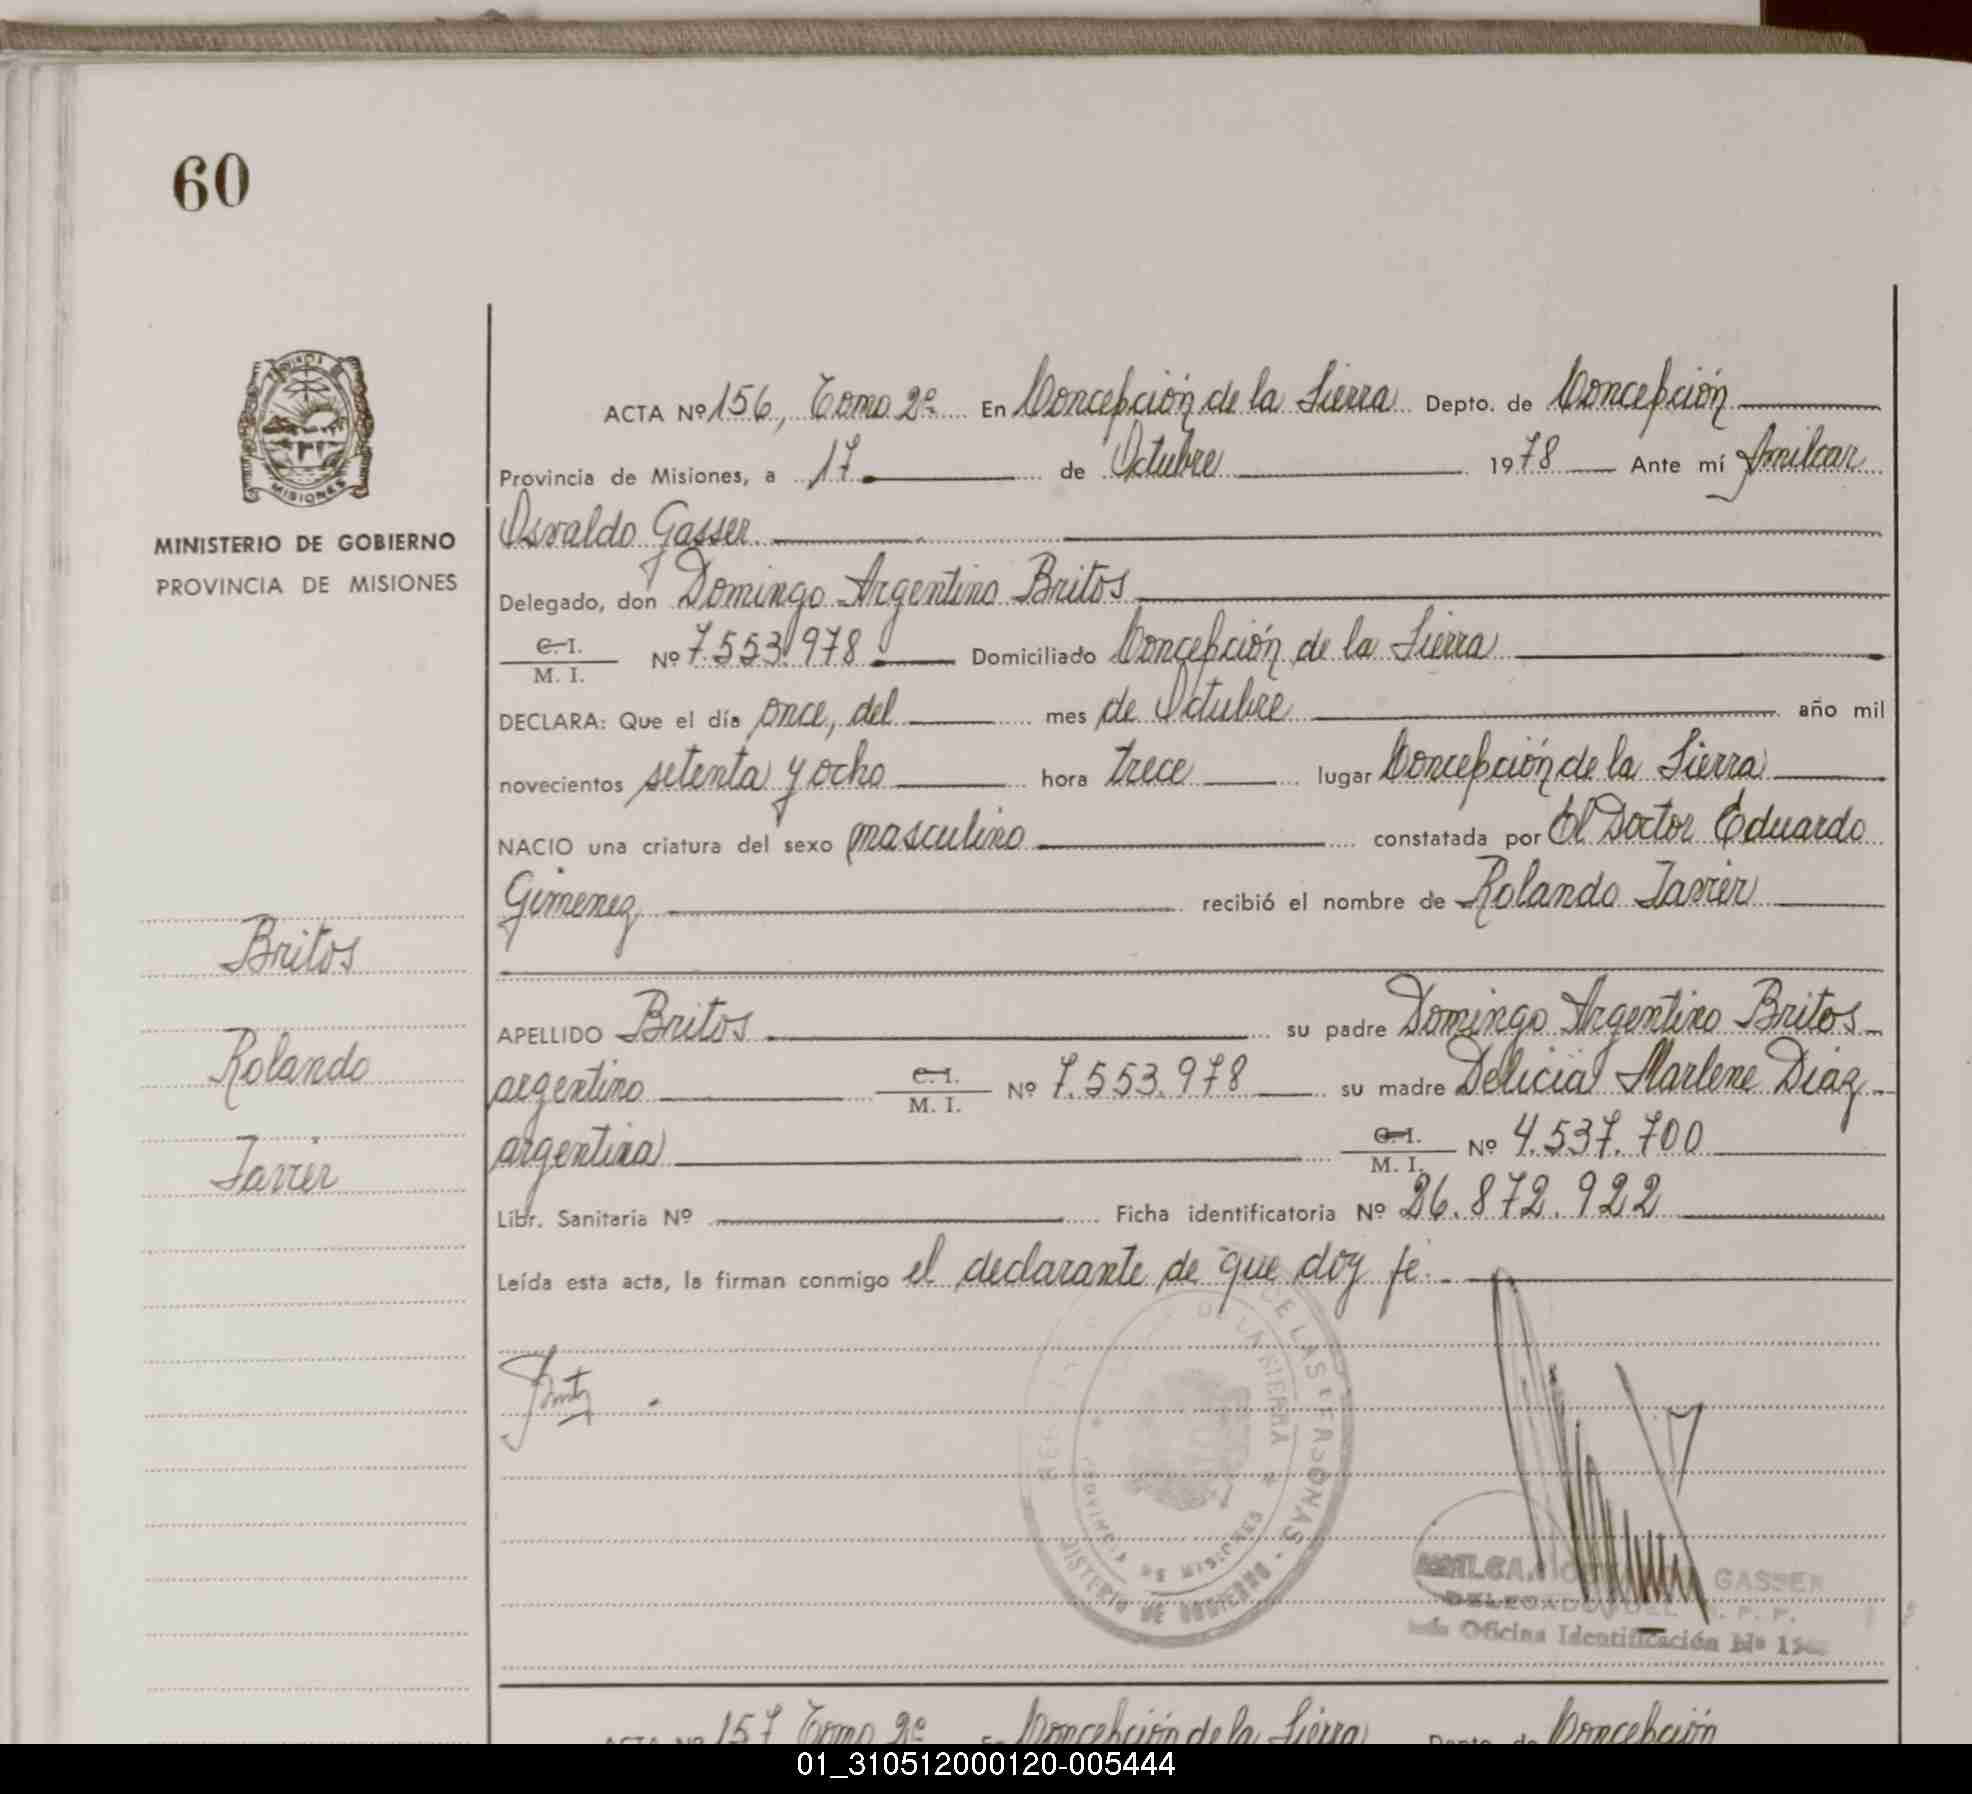 60
MISIONES
MINISTERIO DE GOBIERNO
PROVINCIA DE MISIONES
Britos
Rolando
Javier
ACTA Nº 156, Tomo 2º En Concepción de la Sierra Depto. de Concepción
Provincia de Misiones, a 17 de Octubre 1978 Ante mí Amilcar
Osvaldo Gasser
Delegado, don Domingo Argentino Britos
C. I.
M. I. Nº 7.553.978 Domiciliado Concepción de la Sierra
DECLARA: Que el día once, del mes de Octubre año mil
novecientos setenta y ocho hora trece lugar Concepción de la Sierra
NACIO una criatura del sexo masculino constatada por El Doctor Eduardo
Gimenez recibió el nombre de Rolando Javier
APELLIDO Britos su padre Domingo Argentino Britos
argentino C. I. M. I. Nº 7.553.978 su madre Delicia Marlene Diaz
argentina C. I. M. I. Nº 4.537.700
Libr. Sanitaria Nº Ficha identificatoria Nº 26.872.922
Leída esta acta, la firman conmigo el declarante de que doy fe.
DE LAS PERSONAS
MINISTERIO DE GOBIERNO
PROVINCIA DE MISIONES
GASSER
DELEGADO DEL R. P. P.
Oficina Identificación Nº
ACTA Nº 157 Tomo 2º En Concepción de la Sierra Depto. de Concepción
01_310512000120-005444